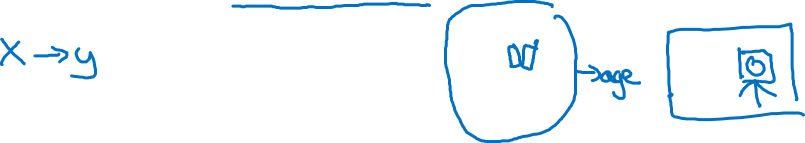 X → y
→ age